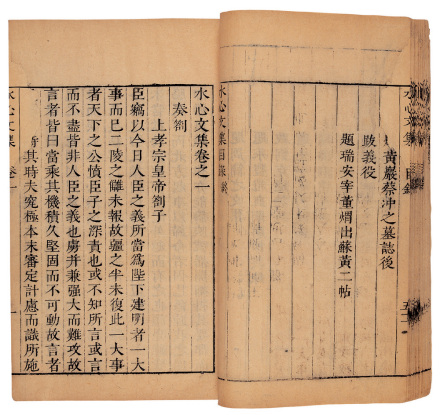 水心文集 目錄
黃巖蔡冲之墓誌後
跋義役
題瑞安宰董焆出蘇黃二帖
水心文集目錄
水心文集卷之一
奏劄
上孝宗皇帝劄子
臣竊以今日人臣之義所當爲陛下建明者一大
事而已二陵之讎未報故疆之半未復此一大事
者天下之公憤臣子之深責也或不知所言或言
而不盡皆非人臣之義也虜并兼强大而難攻故
言者皆曰當乘其機積久堅固而不可動故言者
其時夫究極本末審定計慮而識所施
水心文集 卷一 一